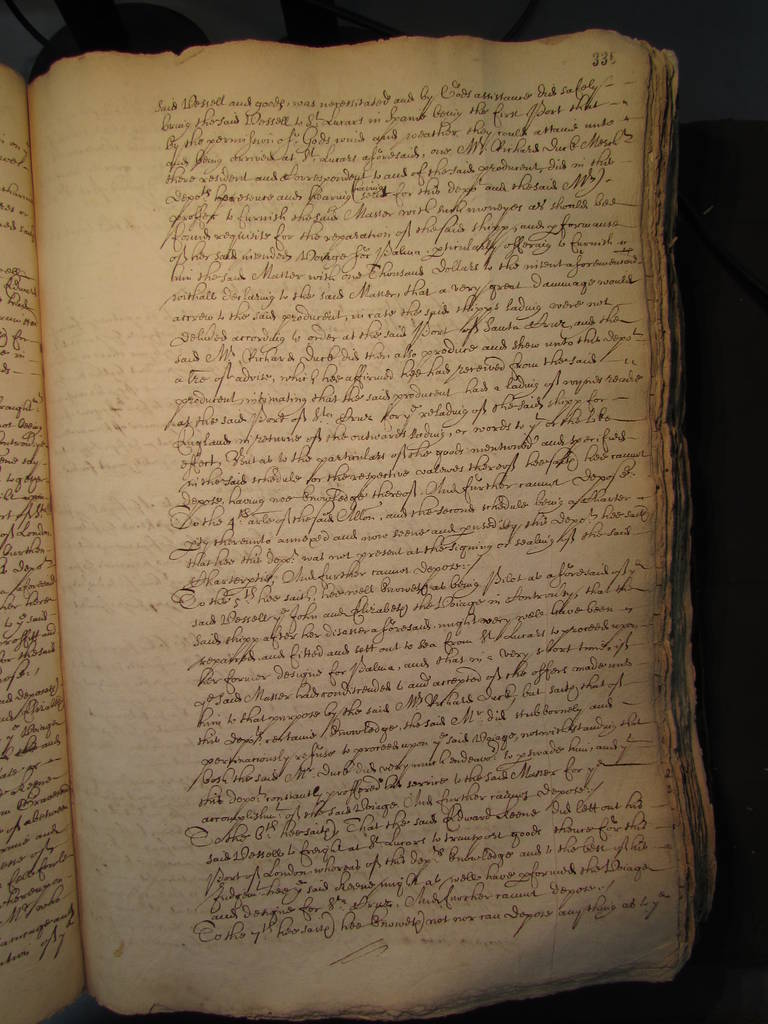 335
said Vessell and goods, was necessitated and by Gods assistance did safely
bring the said Vessell to St Lucars in Spaine being the first Port that
by the permission of Gods wind and weather they could attaine unto
And being arrived at St Lucars aforesaid, one Mr Richard Duck Mercht
there resident and Correspondent to and of the said producent, did in this
Depots presence and hearing for this depot and the said Mr
proffer to furnish the said Master with such moneyes as should bee
found requisite for the reparation of the said shipp, and pformance
of her said intended Voiage for Palma, pticularly offering to furnish
him the said Master with one Thousand Dollars to the intent aforementioned
withall declaring to the said Master, that a very great dammage would
accrew to the said producent, in case the said shipps lading were not
delivered according to order at the said Port of Santa Cruz, and the
said Mr Richard Duck did then also produce and shew unto this depot
a lre of advise, which hee affirmed hee had received from the said
producent intimating that the said producent had a lading of wynes ready
at the said Port of Sta Cruz for ye relading of the said shipp for
England in returne of the outwards lading, or words to ye or the like
effect, But as to the particulars of the goods mentioned and specified
in the said schedule for the respective valewes thereof hee saith hee cannot
depose, having noe knowledge thereof, And further cannot depose.
To the 4th arle of the said Allon, and the second schedule being a Charter
pty thereunto annexed and now seene and perused by this depot hee saith
that hee this depot was not present at the signing or sealing of the said
Charterptie, And further cannot depose:/
To the 5th hee saith, hee well knoweth as being Pilot as aforesaid of ye
said Vessell ye John and Elizabeth the Voiage in controversy, that the
said shipp after her disaster aforesaid, might very well have been
repaired, and fitted and sett out to sea from St Lucars to proceed upon
her former designe for Palma, and that in a very short time, if
ye said Master had condiscended to and accepted of the offers made unto
him to that purpose by the said Mr Richard Duck, but saith that of
this depots certaine knowledge, the said Mr did stubbornely and
pertinaciously refuse to proceed upon ye said Voiage, notwithstanding that
both the said Mr Duck did very much endeavor to pswade him, and yt
this depot constantly proffered his service to the said Master for ye
accomplishmt of the said Voiage And further cannot depose:/
To the 6th hee saith That the said Edward Keene did lett out his
said Vessell to freight at St Lucars to transport goods thence for this
Port of London, whereas of this depots knowledge and to the best of his
Judgemt hee ye said Keene might as well have pformed the Voiage
and designe for Sta Cruz, And further cannot depose:/
To the 7th hee saith hee knoweth not nor can depose any thing as to ye